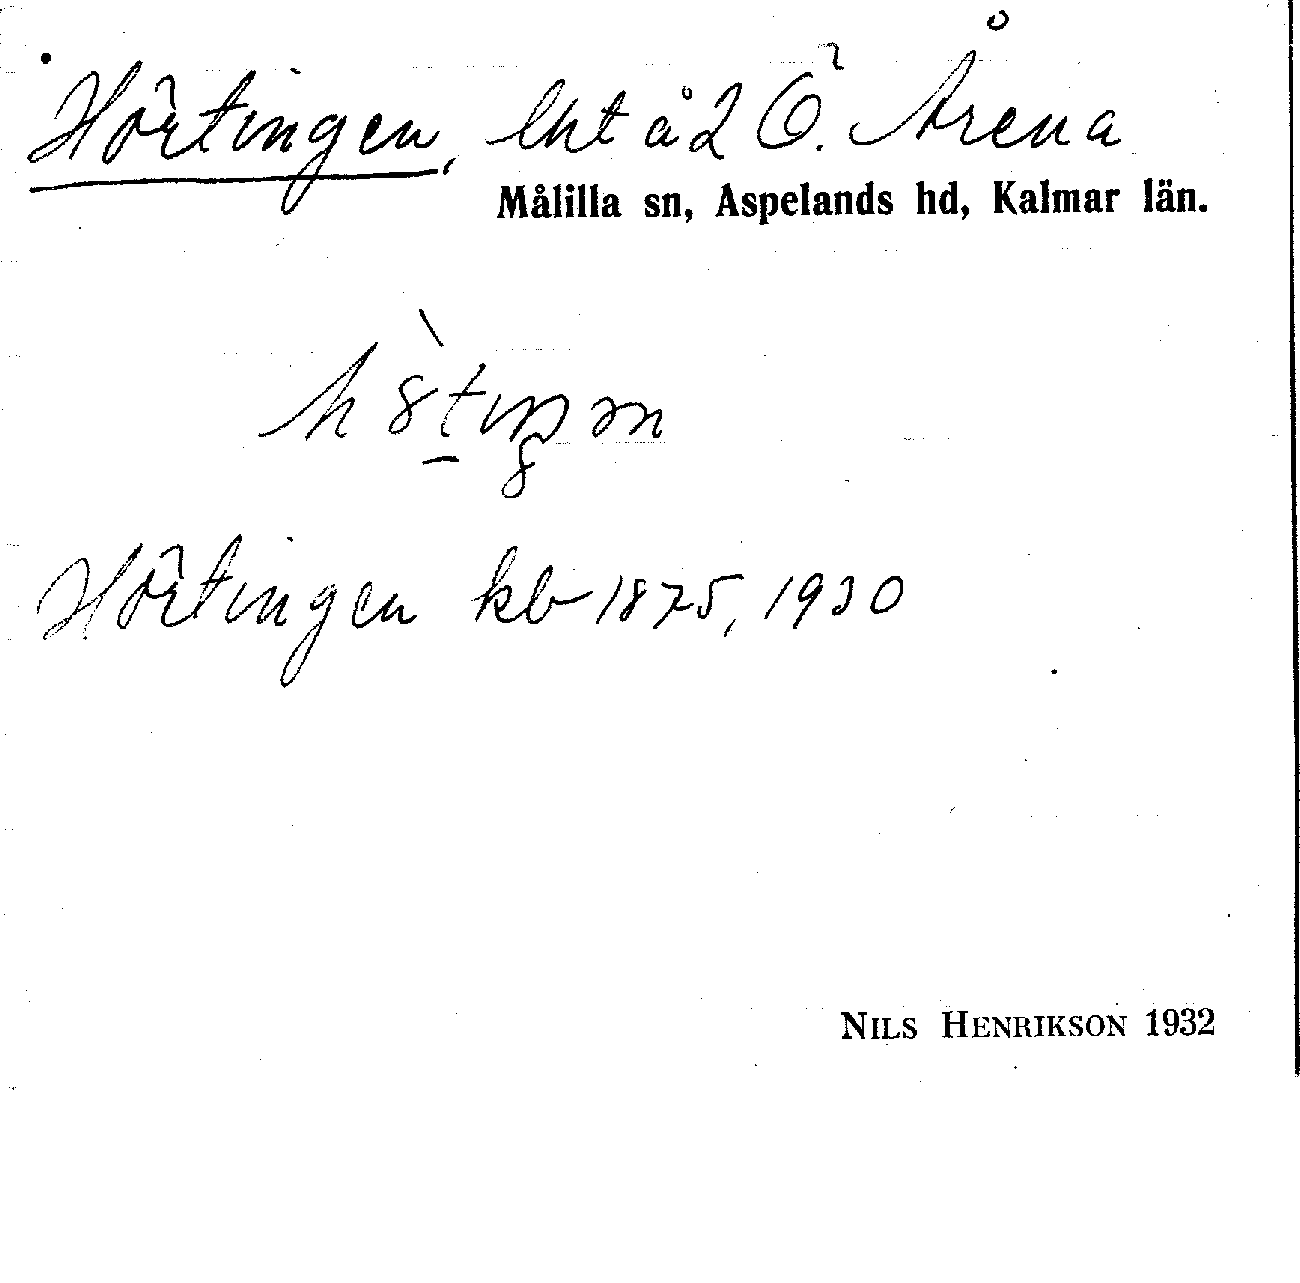 Hörtingen, lht å 2 Ö. Årena
Målilla sn, Aspelands hd, Kalmar län.
Hörtingen kb 1875, 1930
NILS HENRIKSON 1932